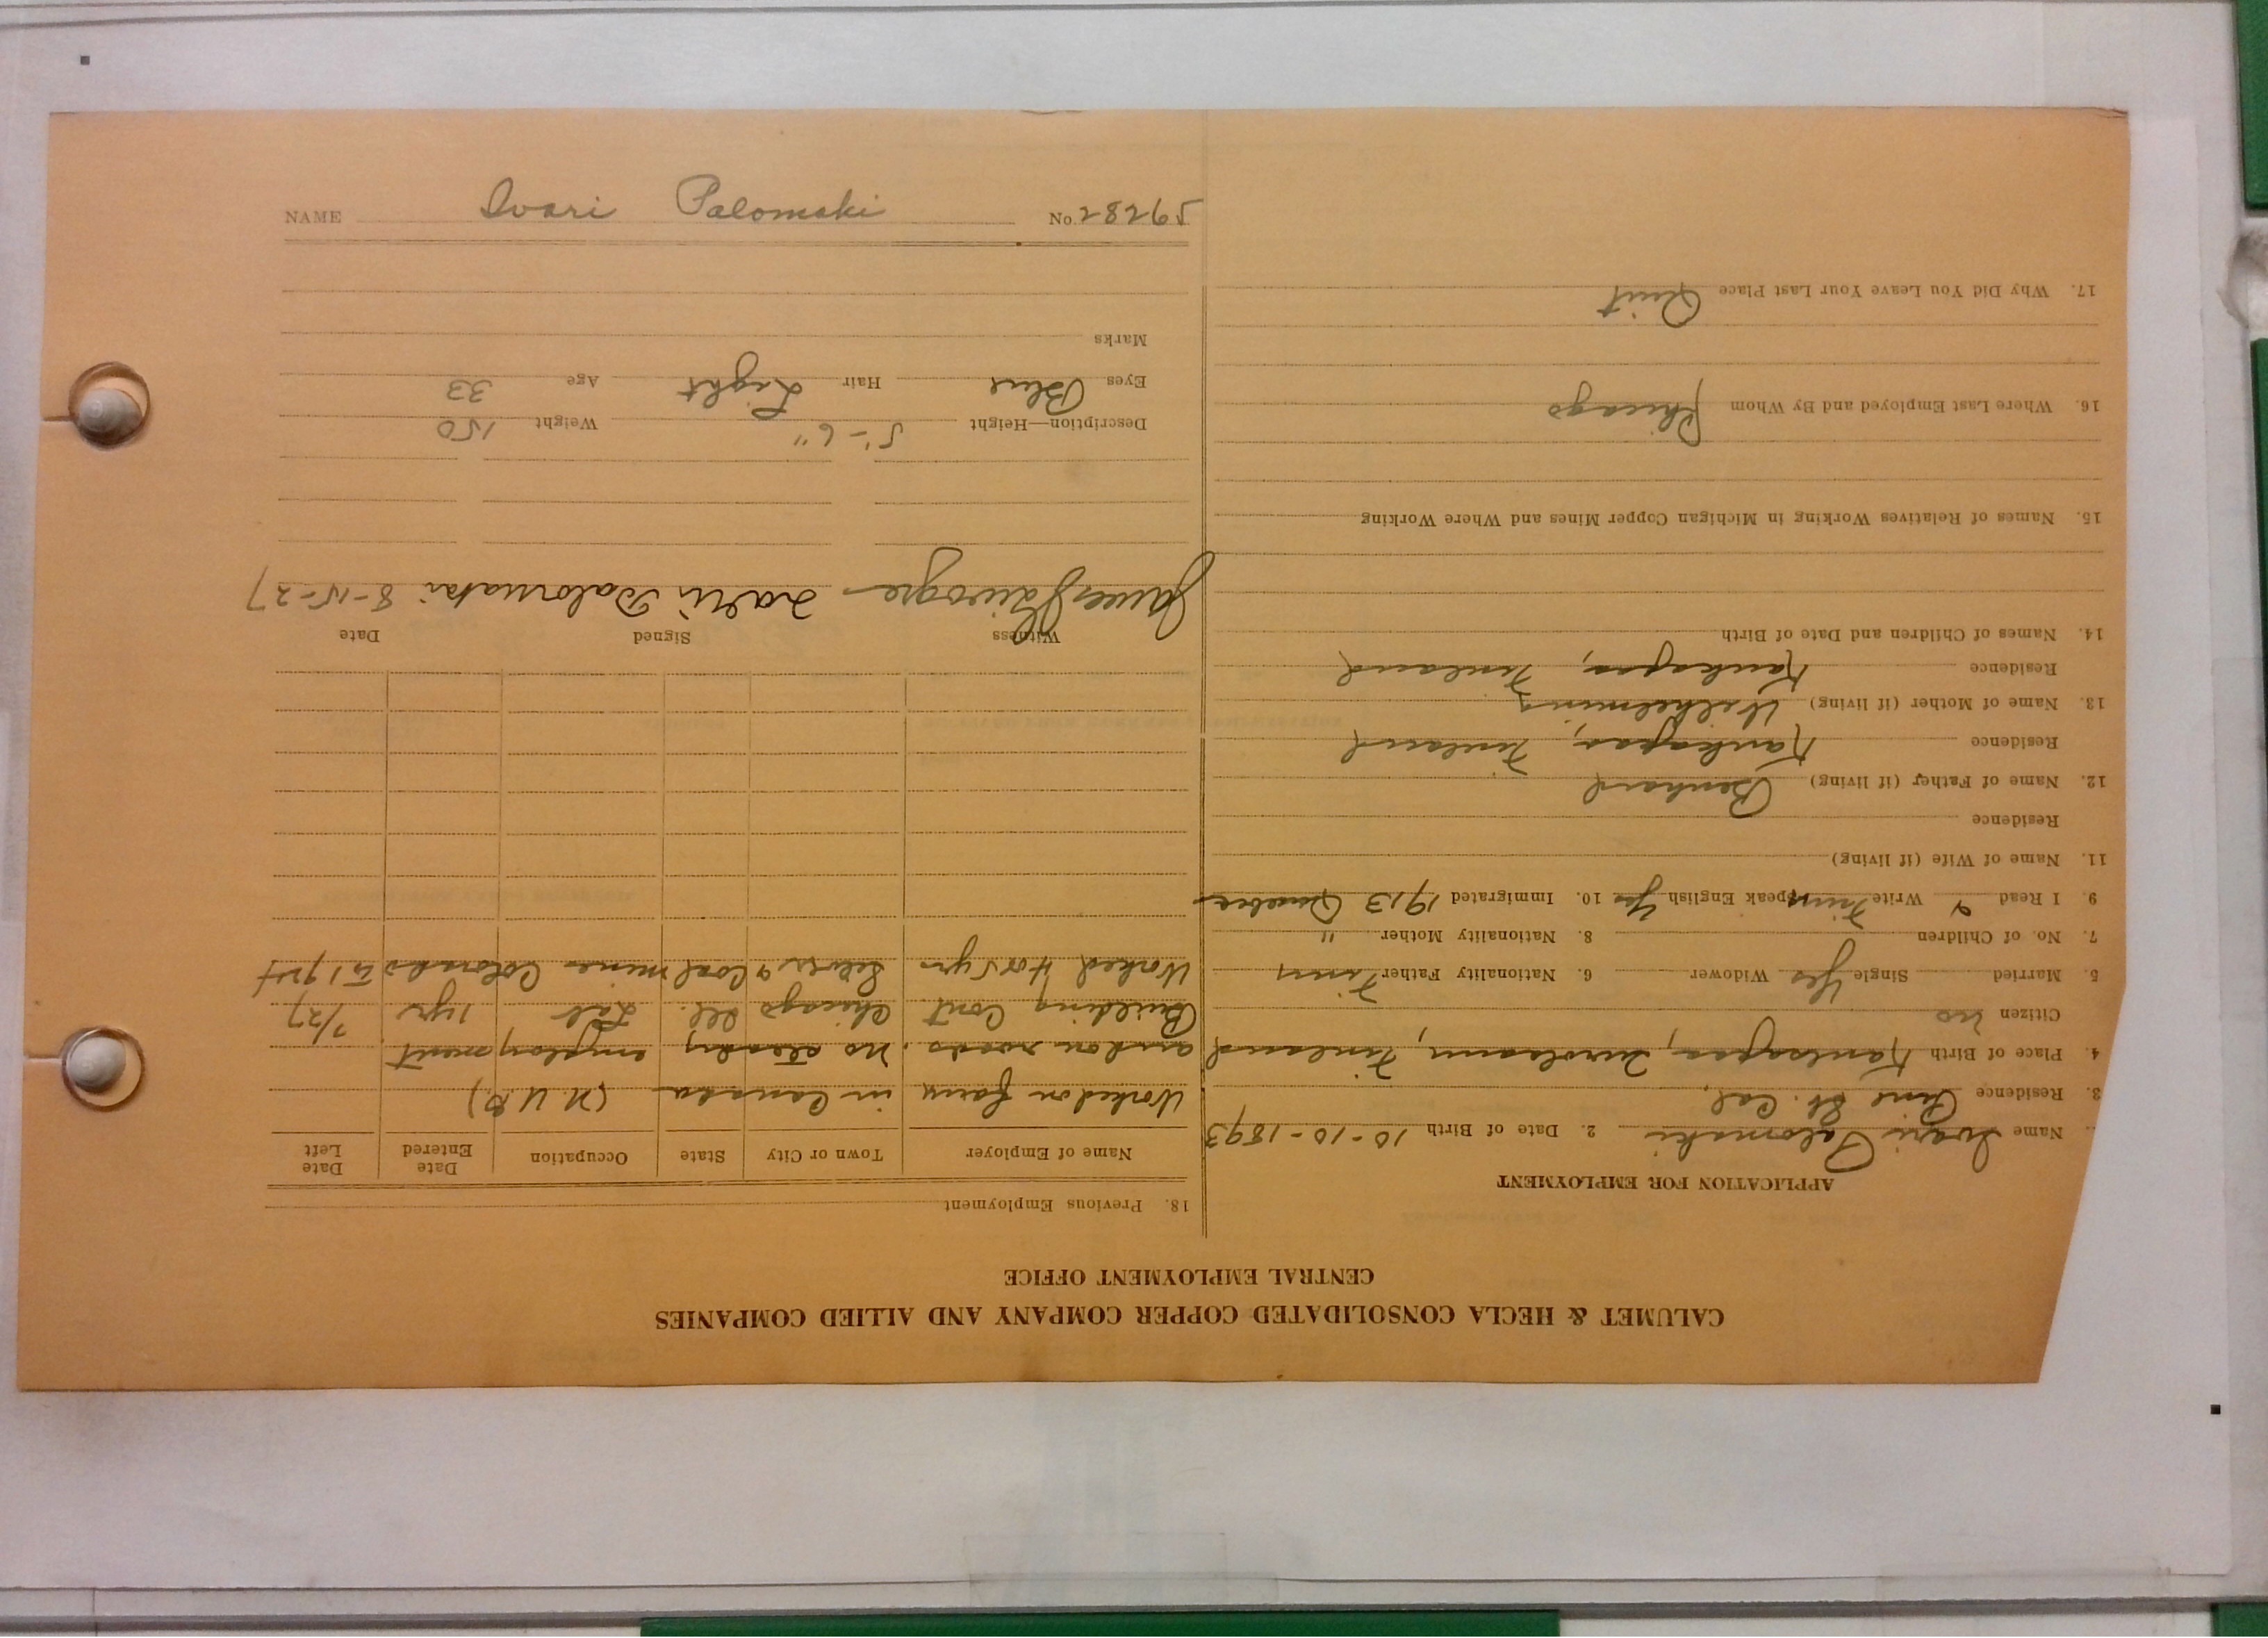 CALUMET & HECLA CONSOLIDATED COPPER COMPANY AND ALLIED COMPANIES
CENTRAL EMPLOYMENT OFFICE
APPLICATION FOR EMPLOYMENT
Name Ivari Palomaki 2. Date of Birth 10-10-1893
3. Residence Pine St. Cal.
4. Place of Birth Kankapaa, Finland
Citizen No
5. Married Single Yes Widower 6. Nationality Father Finn
7. No. of Children 8. Nationality Mother "
9. I Read & Write Finn Speak English Yes 10. Immigrated 1913 Quebec
11. Name of Wife (if living)
Residence
12. Name of Father (if living) Benhard
Residence Kankapaa, Finland
13. Name of Mother (if living) Wilhelmina
Residence Kankapaa, Finland
14. Names of Children and Date of Birth
15. Names of Relatives Working in Michigan Copper Mines and Where Working
16. Where Last Employed and By Whom Chicago
17. Why Did You Leave Your Last Place Quit
18. Previous Employment
Name of Employer Town or City State Occupation Date Entered Date Left
Worked on farm in Canada (N.U.B)
and on roads. No steady employment
Building Cont Chicago Ill. Lab 1 yr 7/27
Worked 4 or 5 yrs Silver & Coal mines Colorado
Witness Signed Date
James Palomaki 8-15-27
Description—Height 5'-6" Weight 150
Eyes Blue Hair Light Age 33
Marks
NAME Ivari Palomaki No. 59282